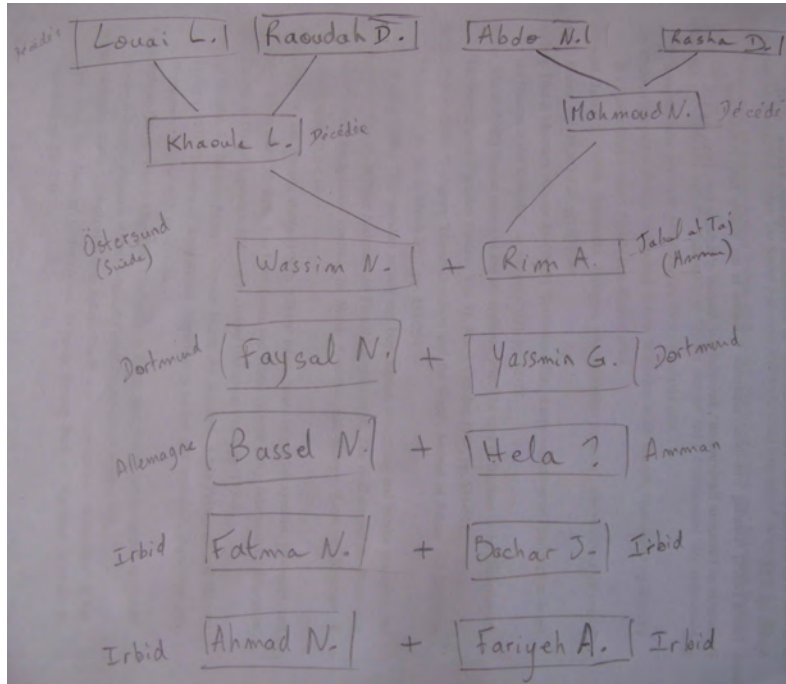 Louai L. Raoudah D. Abdo N. Rasha D.
Khaoula L. Décédée Mahmoud N. Décédé
Östersund (Suède) Wassim N. + Rim A. Jabal at Taj (Amman)
Dortmund Faysal N. + Yassmin G. Dortmund
Allemagne Bassel N. + Hela ? Amman
Irbid Fatma N. + Bachar J. Irbid
Irbid Ahmad N. + Fariyeh A. Irbid